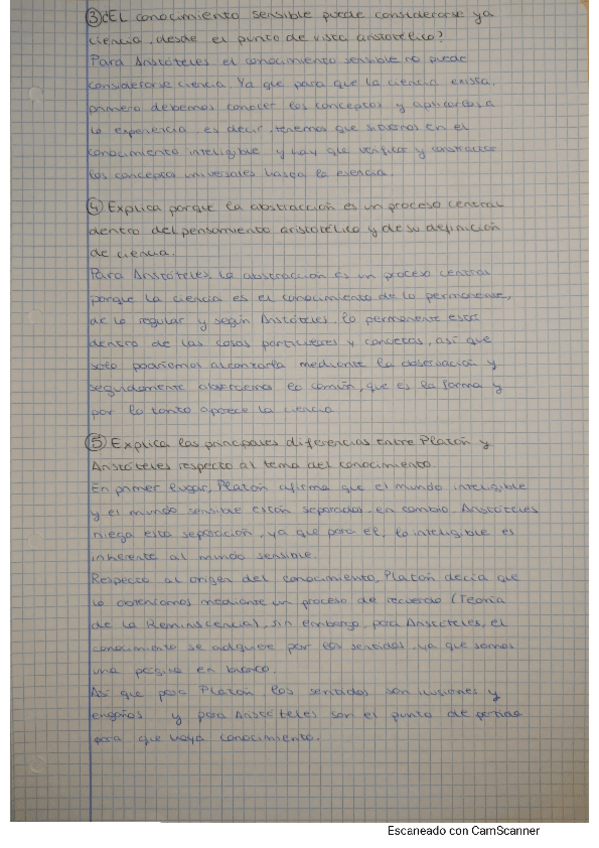 ③ ¿EL conocimiento sensible puede considerarse ya
ciencia, desde el punto de vista aristotélico?
Para Aristóteles el conocimiento sensible no puede
considerarse ciencia. Ya que para que la ciencia exista,
primero debemos conocer los conceptos y aplicarlos a
la experiencia, es decir, tenemos que situarnos en el
conocimiento inteligible y hay que verificar y
los conceptos universales hasta la esencia.
④ Explica porque la abstracción es un proceso central
dentro del pensamiento aristotélico y de su definición
de ciencia.
Para Aristóteles, la abstracción es un proceso central
porque la ciencia es el conocimiento de lo permanente,
de lo regular y según Aristóteles, lo permanente está
dentro de las cosas particulares y concretas, así que
solo podríamos alcanzarla mediante la observación y
seguidamente lo común, que es la forma y
por lo tanto aparece la ciencia.
⑤ Explica las principales diferencias entre Platón y
Aristóteles respecto al tema del conocimiento.
En primer lugar, Platón afirma que el mundo inteligible
y el mundo sensible están separados, en cambio, Aristóteles
niega esta separación, ya que para el, lo inteligible es
inherente al mundo sensible.
Respecto al origen del conocimiento, Platón decía que
lo obteníamos mediante un proceso de recuerdo (Teoría
de la Reminiscencia), sin embargo, para Aristóteles, el
conocimiento se adquiere por los sentidos, ya que somos
una página en blanco.
Así que para Platón los sentidos son ilusiones y
engaños y para Aristóteles son el punto de partida
para que haya conocimiento.
Escaneado con CamScanner